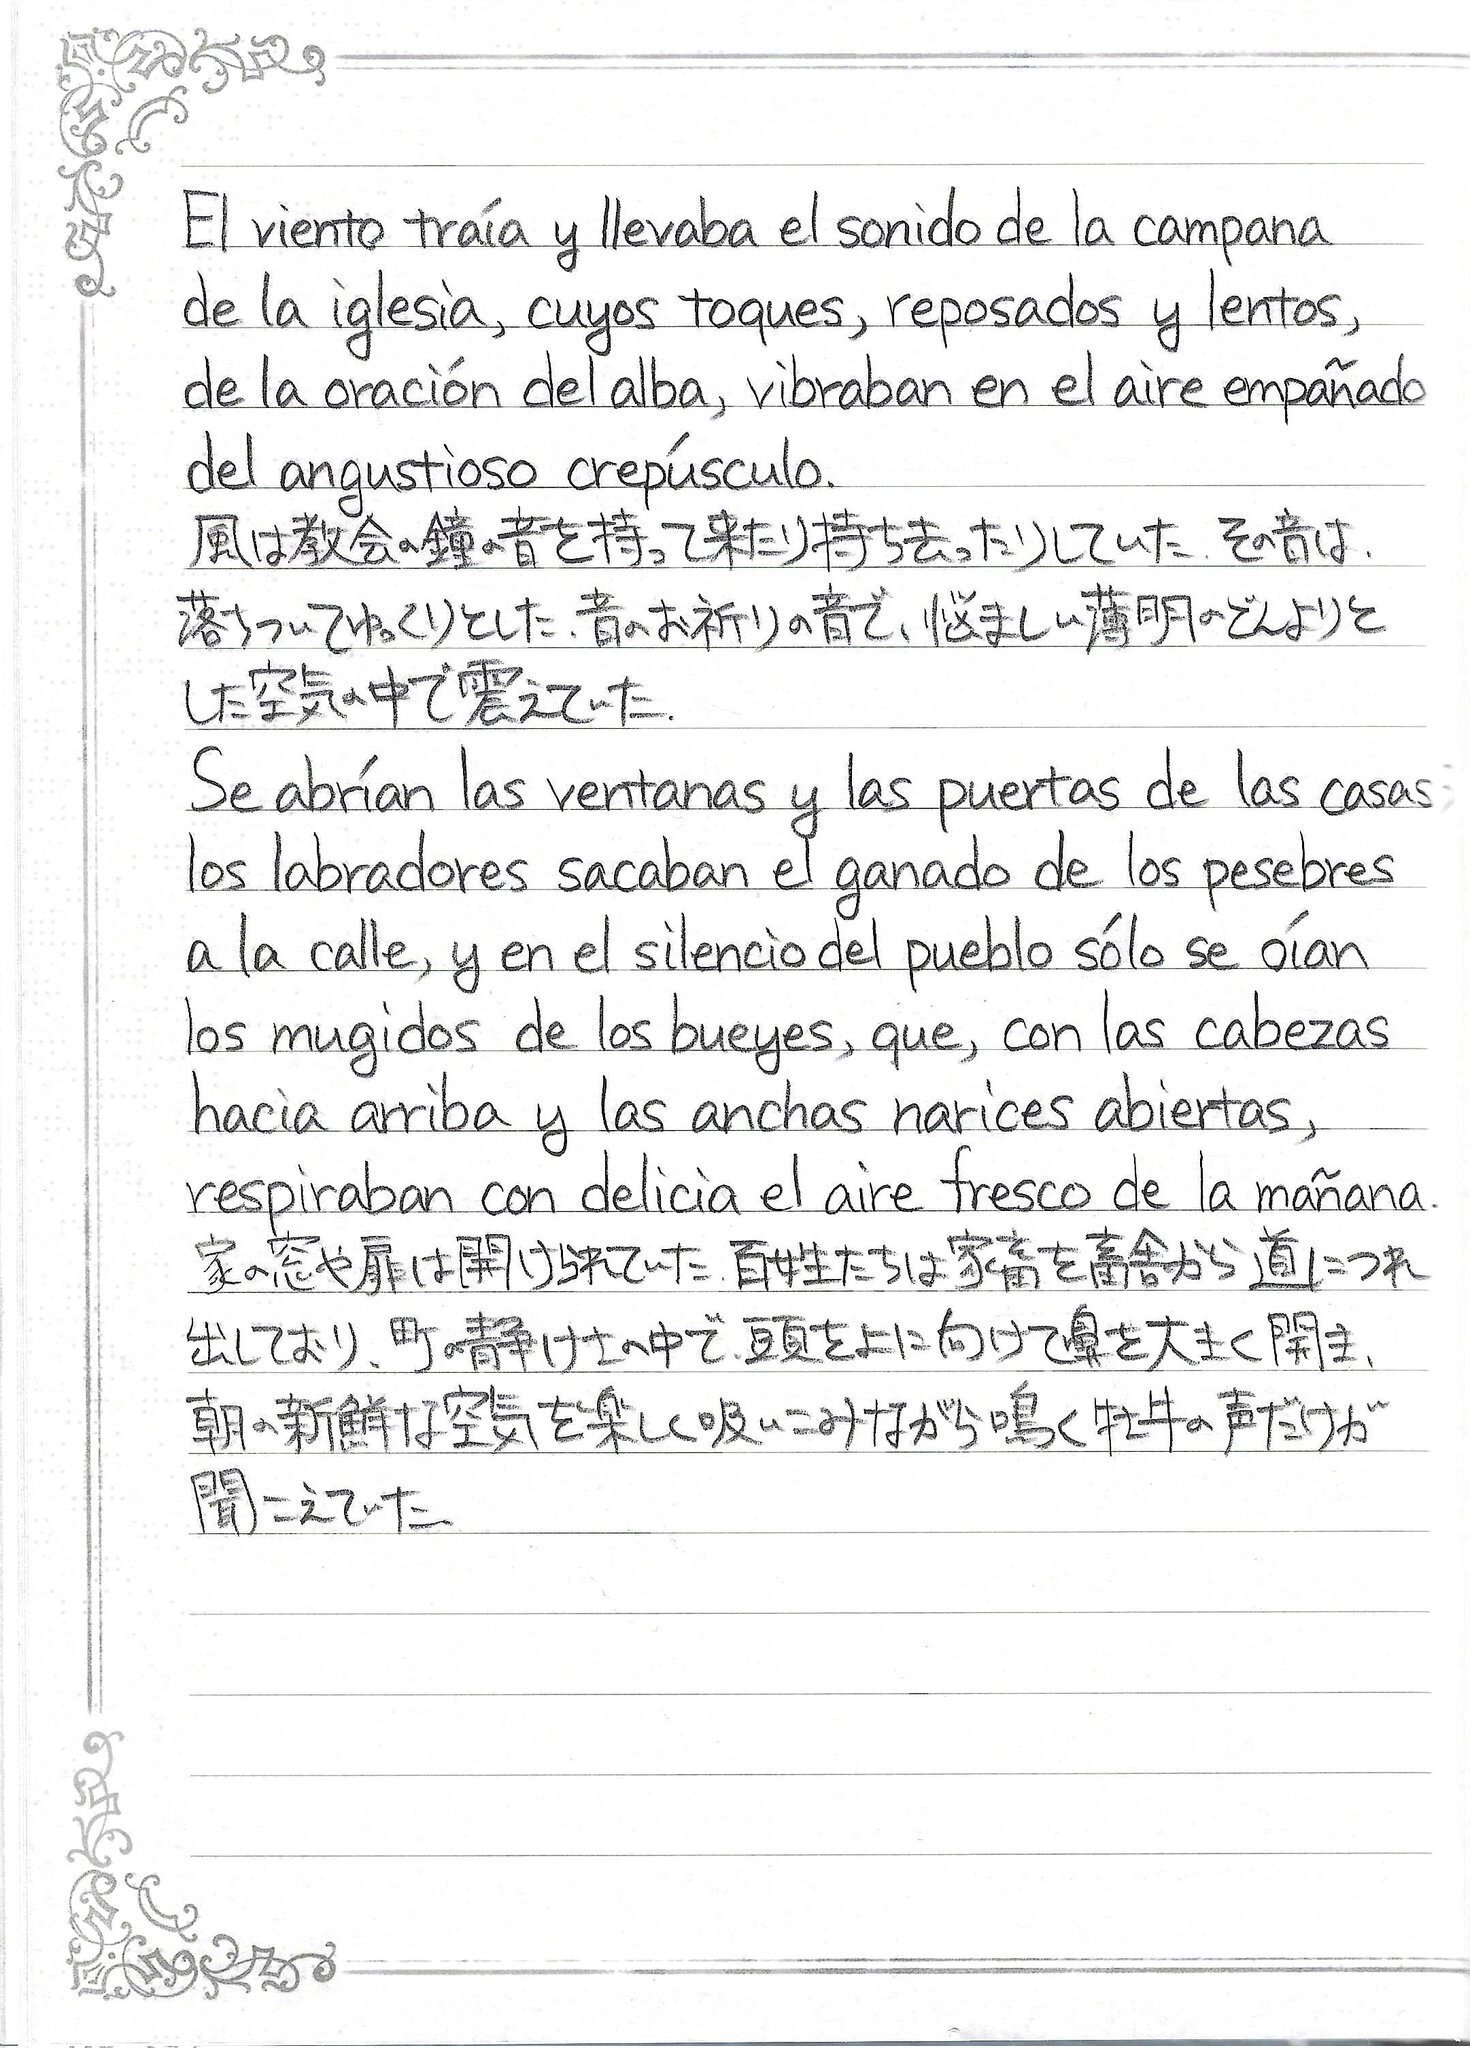 El viento traía y llevaba el sonido de la campana
de la iglesia, cuyos toques, reposados y lentos,
de la oración del alba, vibraban en el aire empañado
del angustioso crepúsculo.
風は教会の鐘の音を持って来たり持ち去ったりしていた. その音は.
落ちついてゆっくりとした. 音のお祈りの音で、悩ましい薄明のどんよりと
した空気の中で震えていた.
Se abrían las ventanas y las puertas de las casas;
los labradores sacaban el ganado de los pesebres
a la calle, y en el silencio del pueblo sólo se oían
los mugidos de los bueyes, que, con las cabezas
hacia arriba y las anchas narices abiertas,
respiraban con delicia el aire fresco de la mañana.
家の窓や扉は開けられていた. 百姓たちは家畜を畜舎から道につれ
出しており、町の静けさの中で. 頭を上に向けて鼻を大きく開き、
朝の新鮮な空気を楽しく吸いこみながら鳴く牡牛の声だけが
聞こえていた.